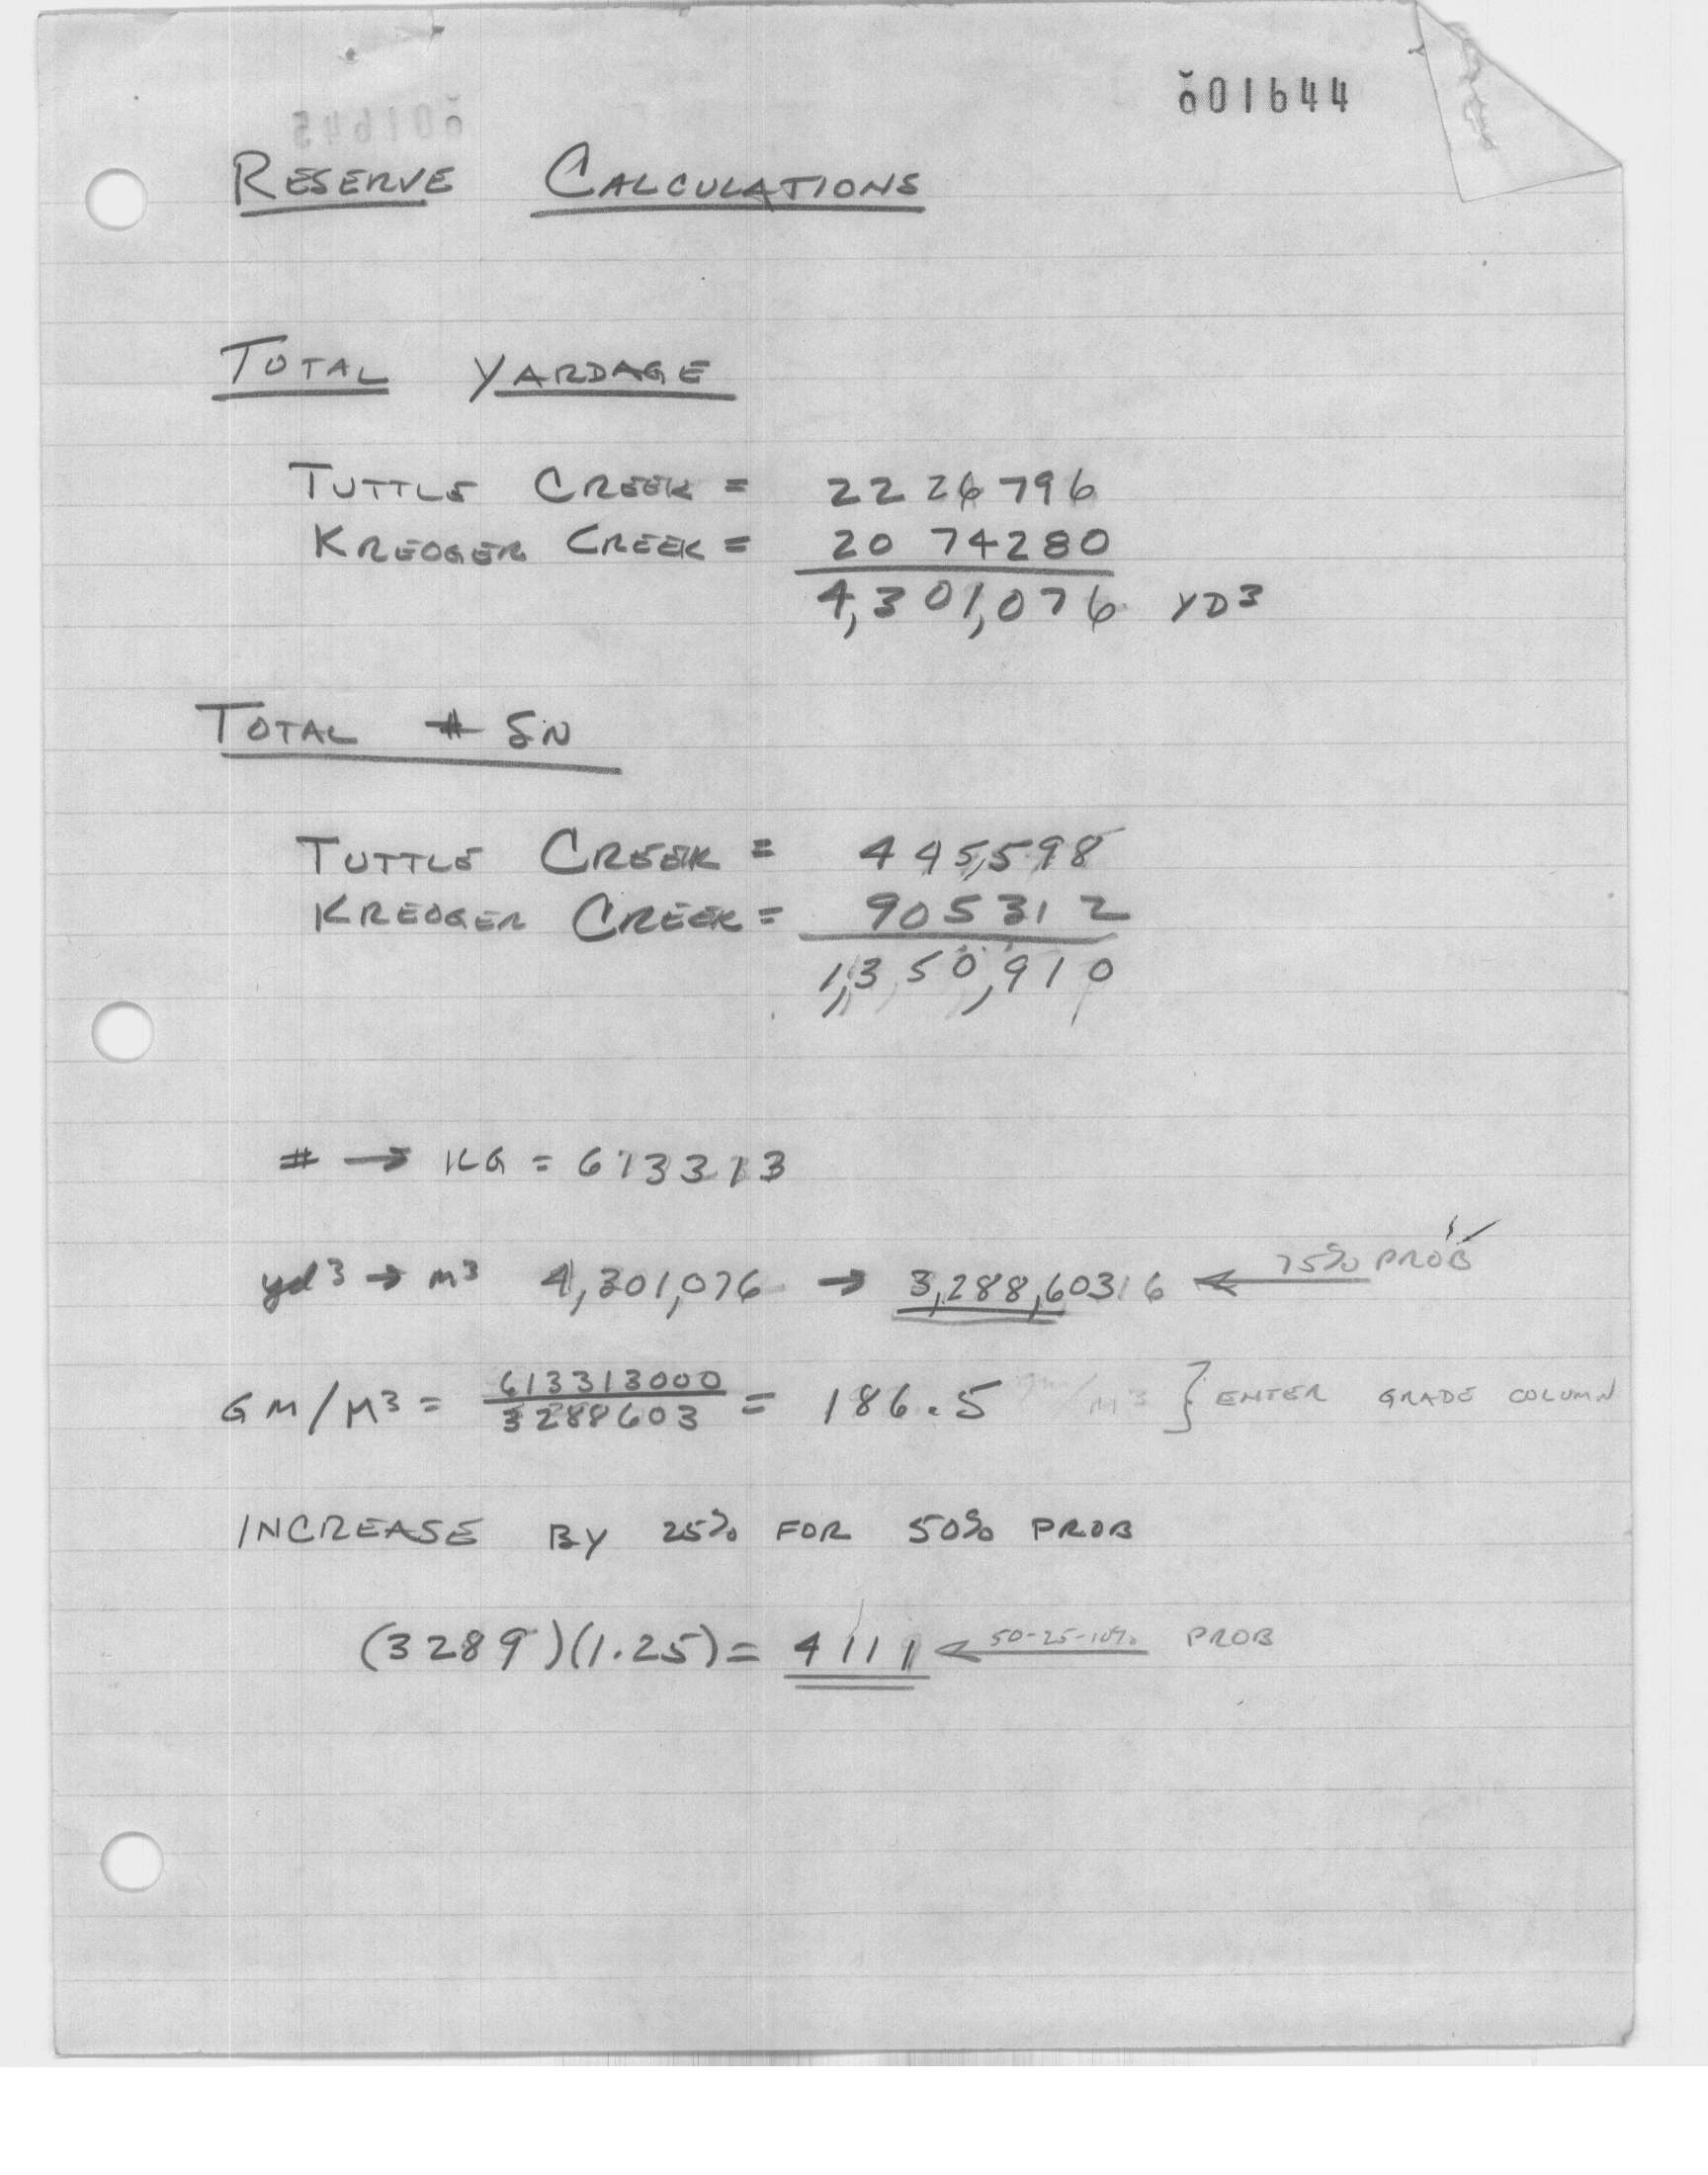 001644
RESERVE CALCULATIONS
TOTAL YARDAGE
TUTTLE CREEK = 2226796
KREOGER CREEK = 2074280
4,301,076 YD3
TOTAL # SN
TUTTLE CREEK = 445,598
KREOGER CREEK = 905312
1,350,910
# → KG = 613313
yd3 → m3 4,301,076 → 3,288,60316 ← 75% PROB
GM/M3 = 613313000 / 3288603 = 186.5 gm/m3 } ENTER GRADE COLUMN
INCREASE BY 25% FOR 50% PROB
(3289)(1.25) = 4111 ← 50-25-10% PROB